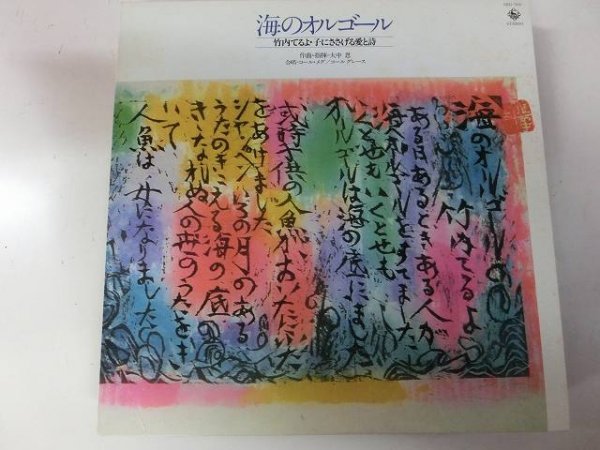 海のオルゴール
竹内てるよ・子にささげる愛と詩
作曲・指揮・大中 恩
合唱・コール・メグ/コール グレース
STEREO
海のオルゴール
竹内てるよ
ある日あるときある人が
海へオルゴールをすてました
いくときも いくとせも
オルゴールは海の底にました
或時子供の人魚が
をあけました
シャンペンいろの月のある
うたのきこえる海の底の
きゝなれぬ人の世のうたをき
いて
人魚は 女になりました